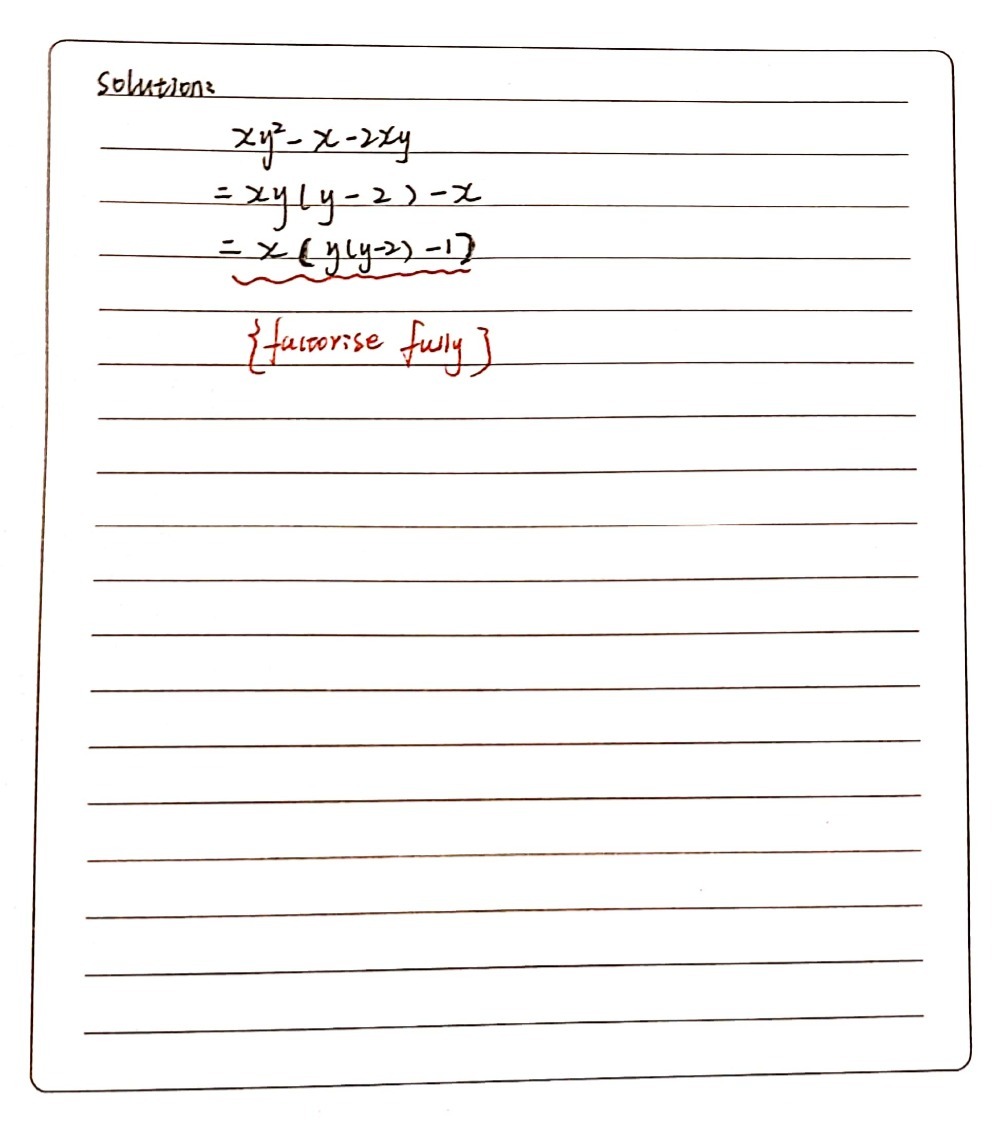 Solution:
xy² - x - 2xy
= xy(y - 2) - x
= x[y(y-2) - 1]
{factorise fully}